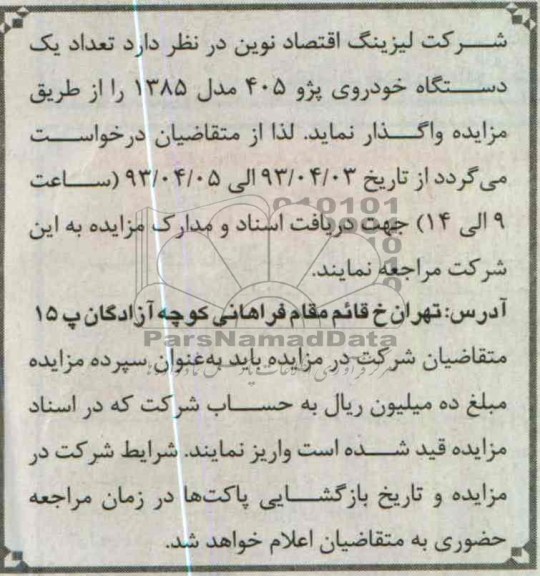 شرکت لیزینگ اقتصاد نوین در نظر دارد تعداد یک
دستگاه خودروی پژو ۴۰۵ مدل ۱۳۸۵ را از طریق
مزایده واگذار نماید. لذا از متقاضیان درخواست
می‌گردد از تاریخ ۹۳/۰۴/۰۳ الی ۹۳/۰۴/۰۵ (ساعت
۹ الی ۱۴) جهت دریافت اسناد و مدارک مزایده به این
شرکت مراجعه نمایند.
آدرس: تهران خ قائم مقام فراهانی کوچه آزادگان پ ۱۵
ParsNamadData
متقاضیان شرکت در مزایده باید به‌عنوان سپرده مزایده
مبلغ ده میلیون ریال به حساب شرکت که در اسناد
مزایده قید شده است واریز نمایند. شرایط شرکت در
مزایده و تاریخ بازگشایی پاکت‌ها در زمان مراجعه
حضوری به متقاضیان اعلام خواهد شد.